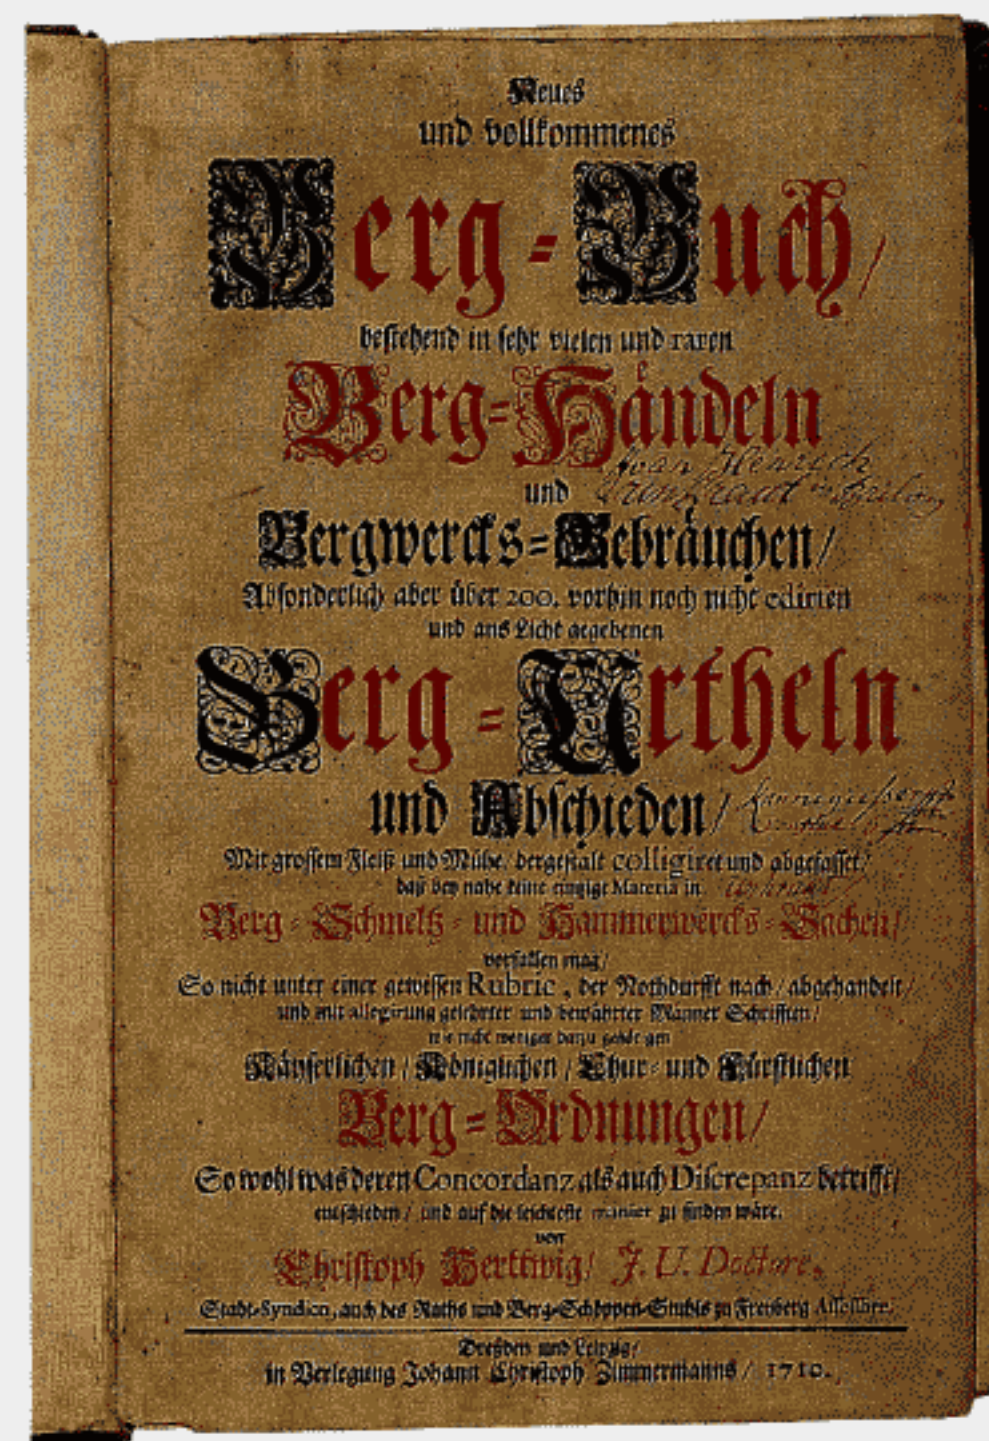 Neues
und vollkommenes
Berg-Buch/
bestehend in sehr vielen und raren
Berg-Händeln
Joan Henrich
und
Bergwercks-Gebräuchen/
Absonderlich aber über 200. vorhin noch nicht edirten
und ans Licht gegebenen
Berg-Urtheln
und Abschieden/
Mit grossem Fleiß und Mühe/ dergestalt colligiret und abgefasset/
daß bey nahe keine einzige Materia in
Berg- Schmeltz- und Hammerwercks-Sachen/
vorfallen mag/
So nicht unter einer gewissen Rubric, der Nothdurfft nach/ abgehandelt/
und mit allegirung gelehrter und bewährter Männer Schrifften/
wie nicht weniger darzu gehörigen
Käyserlichen/ Königlichen/ Chur- und Fürstlichen
Berg-Ordnungen/
So wohl was deren Concordanz als auch Discrepanz betrifft/
entschieden/ und auf die leichteste manier zu finden wäre.
von
Christoph Herttwig/ J. U. Doctore,
Stadt-Syndico, auch des Raths und Berg-Schöppen-Stuhls zu Freyberg Assessore.
Dreßden und Leipzig/
in Verlegung Johann Christoph Zimmermanns/ 1710.